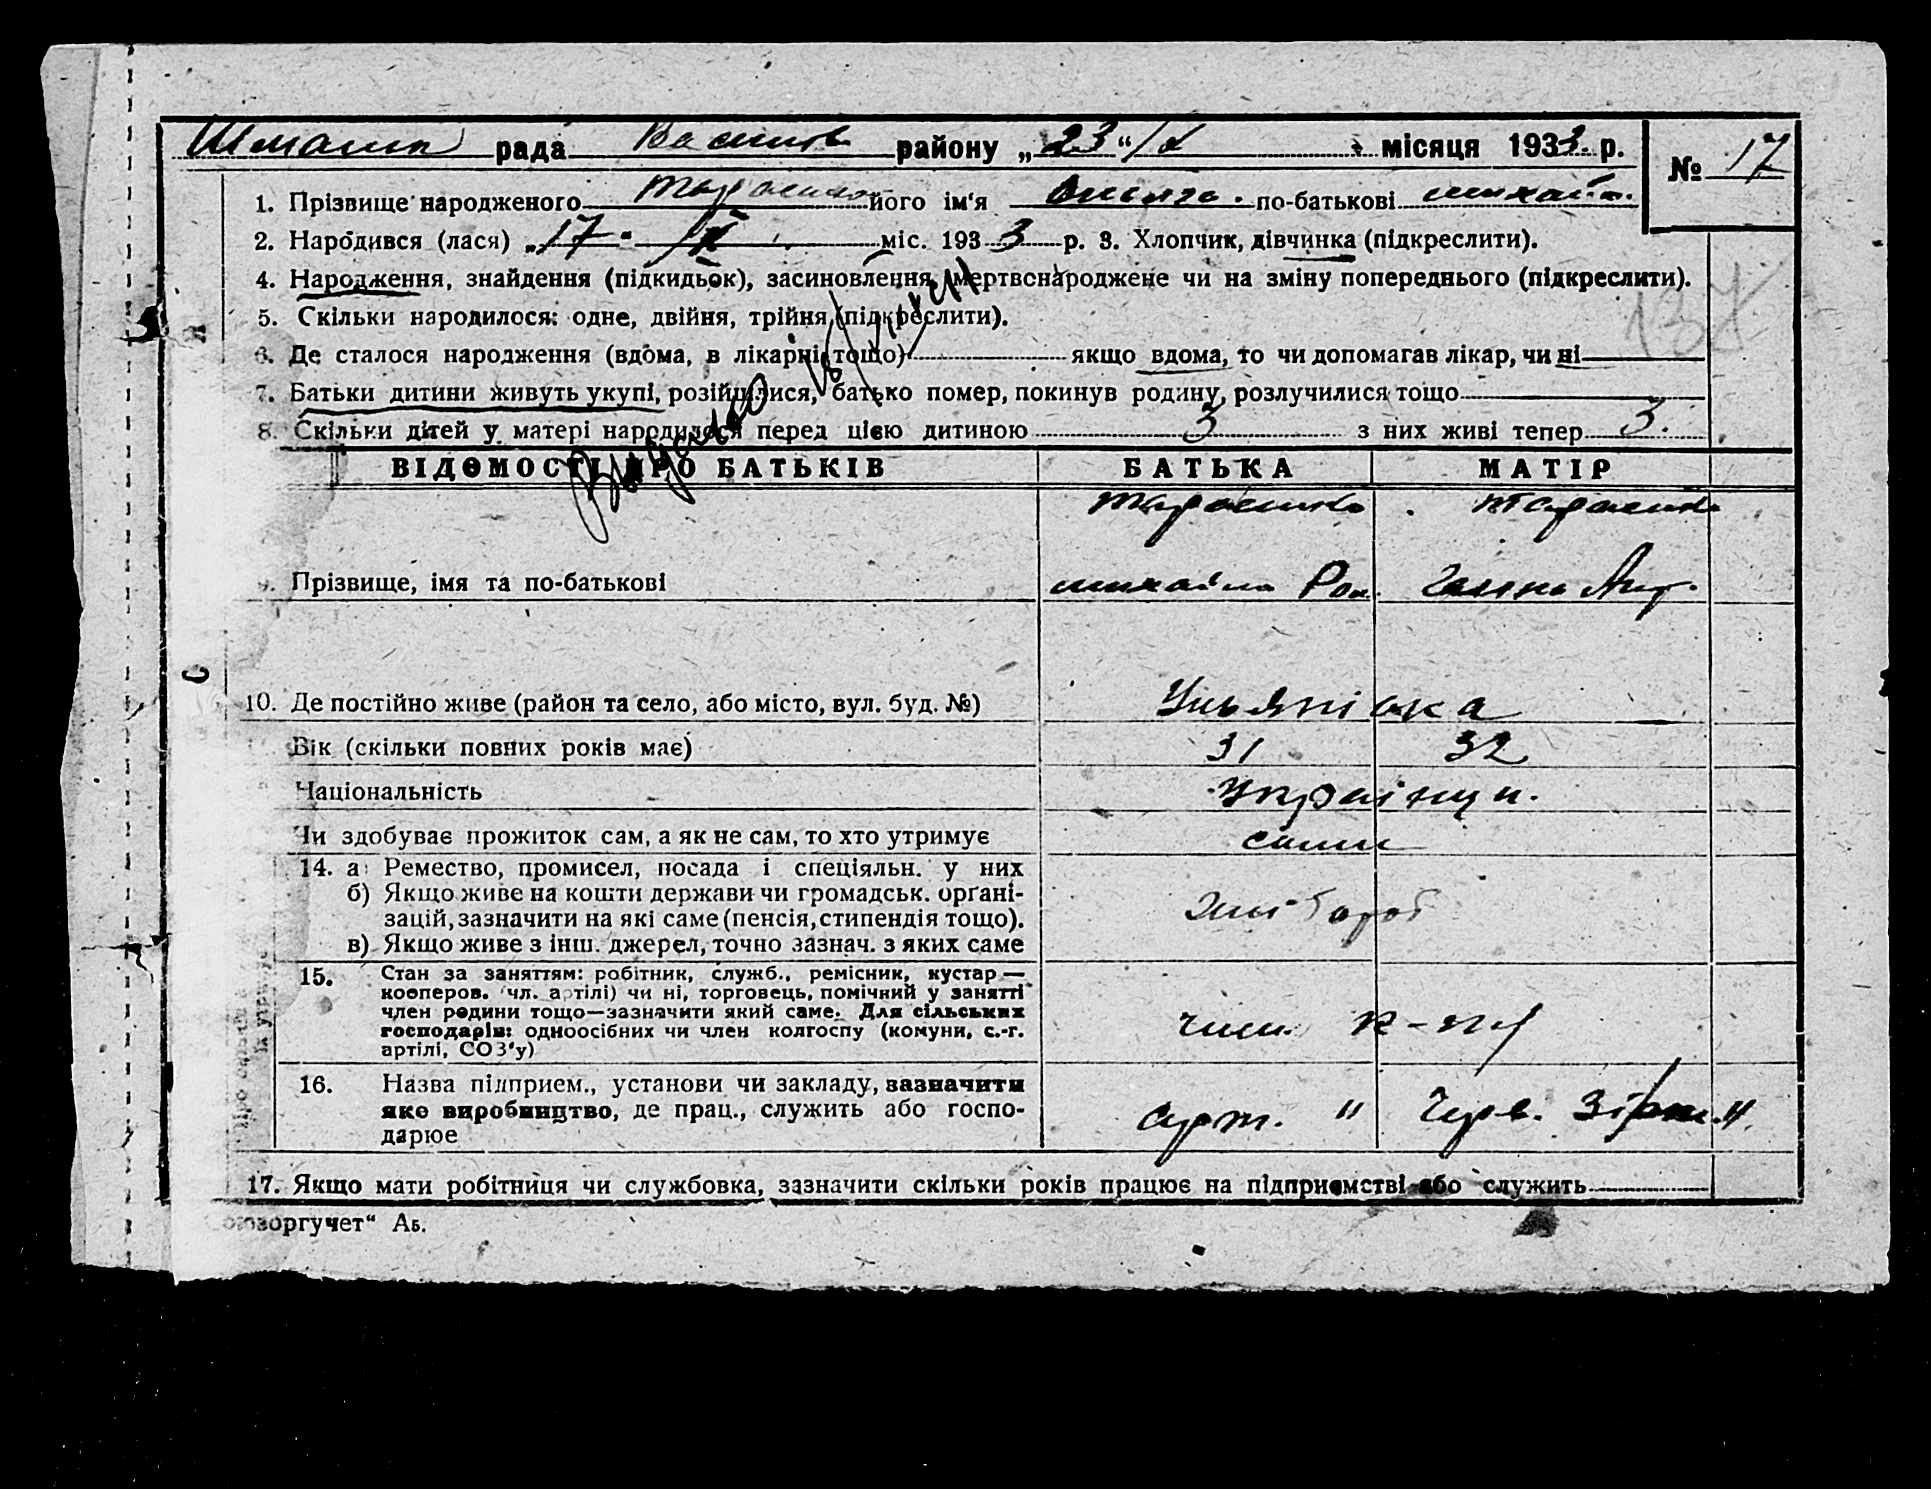 рада района району „23“ IX місяця 1933 р.
№ 17
1. Прізвище народженого Тараненко його ім'я Ольга. по-батькові Михайл.
2. Народився (лася) „17" IX міс. 1933 р. 3. Хлопчик, дівчинка (підкреслити).
4. Народження, знайдення (підкидьок), засиновлення, мертвонароджене чи на зміну попереднього (підкреслити).
137
5. Скільки народилося: одне, двійня, трійня (підкреслити).
6. Де сталося народження (вдома, в лікарні тощо) якщо вдома, то чи допомагав лікар, чи ні
7. Батьки дитини живуть укупі, розійшлися, батько помер, покинув родину, розлучилися тощо
8. Скільки дітей у матері народилося перед цією дитиною 3 з них живі тепер 3.
ВІДОМОСТІ ПРО БАТЬКІВ БАТЬКА МАТІР
Тараненко Тараненко
9. Прізвище, імя та по-батькові Михайло Ром. Ганна
10. Де постійно живе (район та село, або місто, вул. буд. №) Ульянівка
Вік (скільки повних років має) 31 32
Національність Українци.
Чи здобуває прожиток сам, а як не сам, то хто утримує сами
14. а Ремество, промисел, посада і спеціяльн. у них
б) Якщо живе на кошти держави чи громадськ. орґані-
зацій, зазначити на які саме (пенсія, стипендія тощо).
в) Якщо живе з інш. джерел, точно зазнач. з яких саме
15. Стан за заняттям: робітник, служб., ремісник, кустар—
кооперов. чл. артілі) чи ні, торговець, помічний у занятті
член родини тощо—зазначити який саме. Для сільських
господарів: одноосібних чи член колгоспу (комуни, с.-г.
артілі, СОЗ'у)
член. к-пу
16. Назва підприєм., установи чи закладу, зазначити
яке виробництво, де прац., служить або госпо-
дарює
Арт. " Черв. Зірка"
17. Якщо мати робітниця чи службовка, зазначити скільки років працює на підприємстві або служить
Союзоргучет“ Аб.